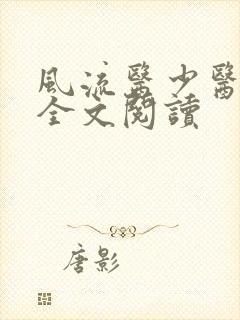 風流醫少醫
全文閱讀
唐影